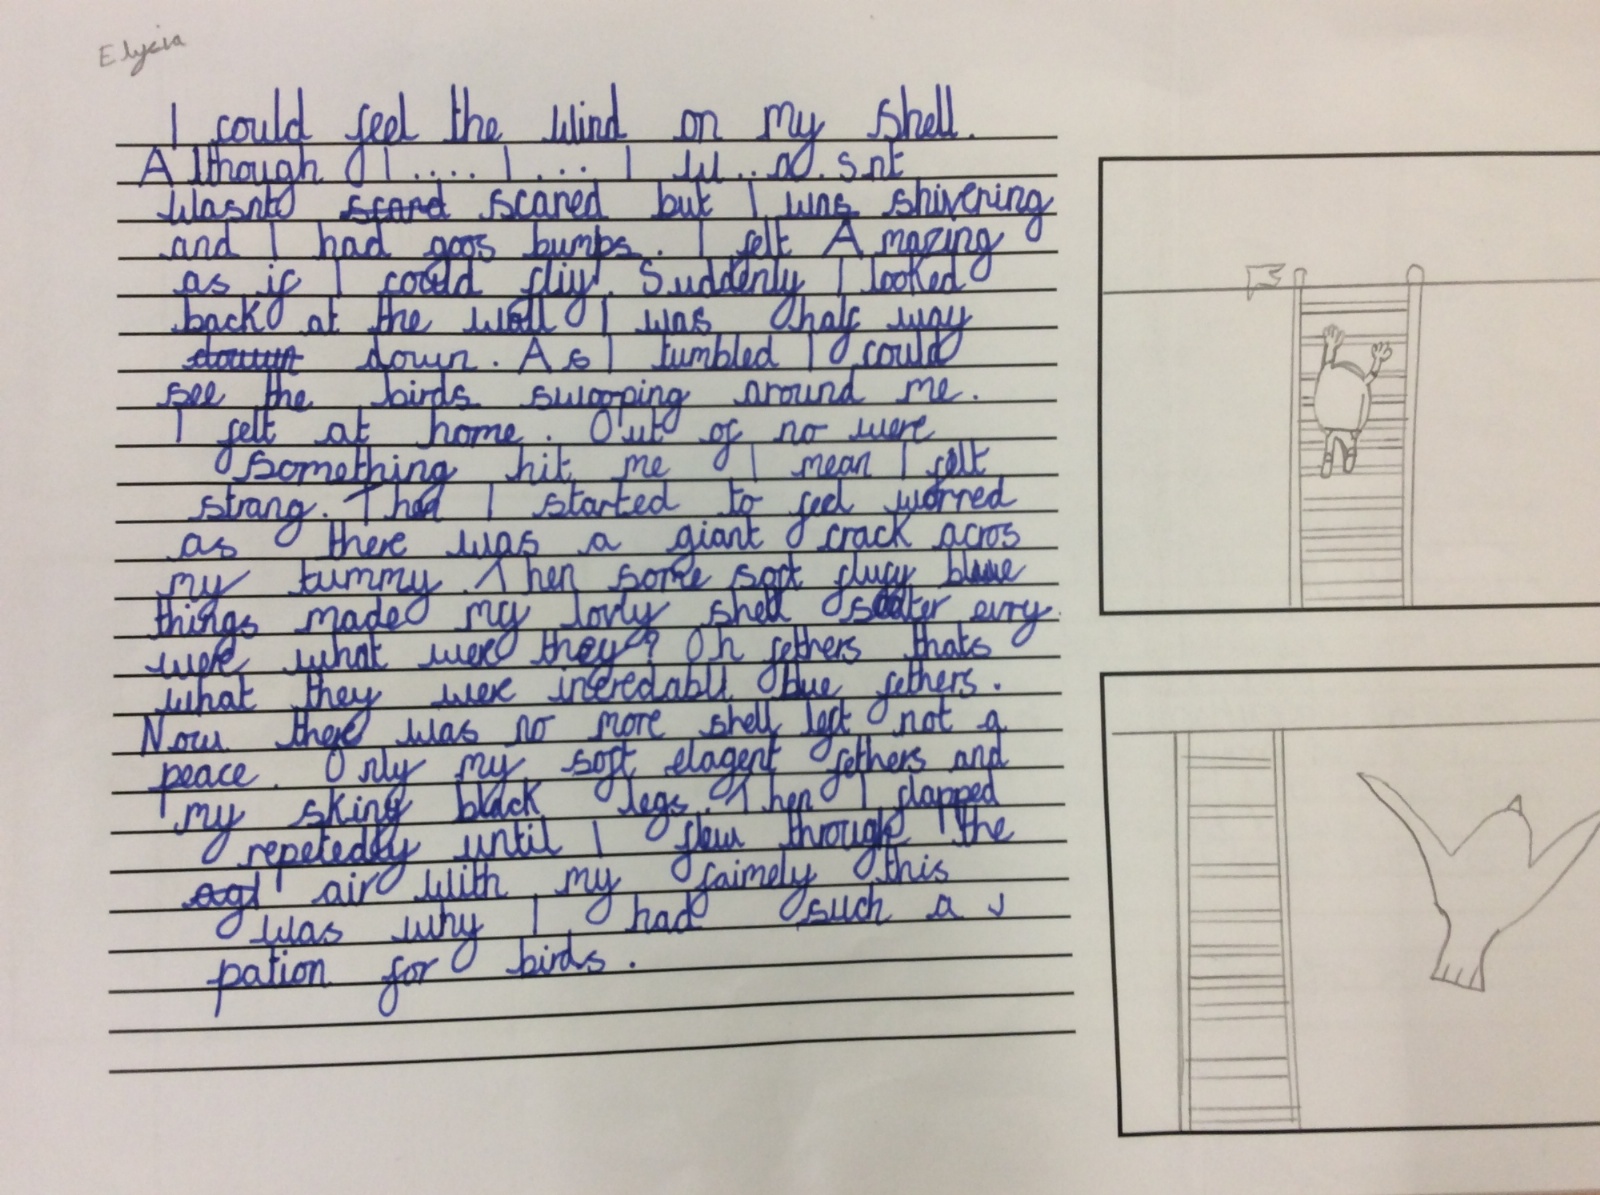 Elycia
I could feel the wind on my shell.
Although I.... I ... I w..a.snt
wasnt scard scared but I was shivering
and I had goos bumps. I felt Amazing
as if I could fliy. Suddenly I looked
back at the wall I was half way
down. As I tumbled I could
see the birds swooping around me.
I felt at home. Out of no were
something hit me I mean I felt
strang. Then I started to feel worred
as there was a giant crack acros
my tummy. Then some soft flufy blue
things made my lovly shell scater evry
were what were they? Oh fethers thats
what they were incredabll blue fethers.
Now there was no more shell left not a
peace. Only my soft elagent fethers and
my skiny black legs. Then I flapped
repetedly until I flew through the
air with my faimely this
was why I had such a
pation for birds.